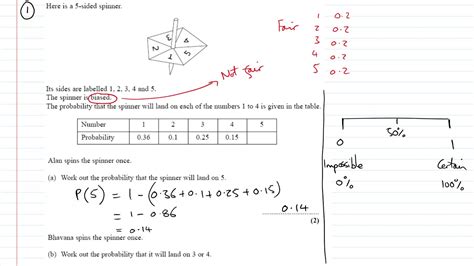 1
Here is a 5-sided spinner.
2 3 4 5
Its sides are labelled 1, 2, 3, 4 and 5.
The spinner is biased.
Not fair
Fair
1 0.2
2 0.2
3 0.2
4 0.2
5 0.2
The probability that the spinner will land on each of the numbers 1 to 4 is given in the table.
Number 1 2 3 4 5
Probability 0.36 0.1 0.25 0.15
Alan spins the spinner once.
(a) Work out the probability that the spinner will land on 5.
P(5) = 1 - (0.36 + 0.1 + 0.25 + 0.15)
= 1 - 0.86
= 0.14
0.14
(2)
Bhavana spins the spinner once.
(b) Work out the probability that it will land on 3 or 4.
50%
0 1
Impossible Certain
0% 100%